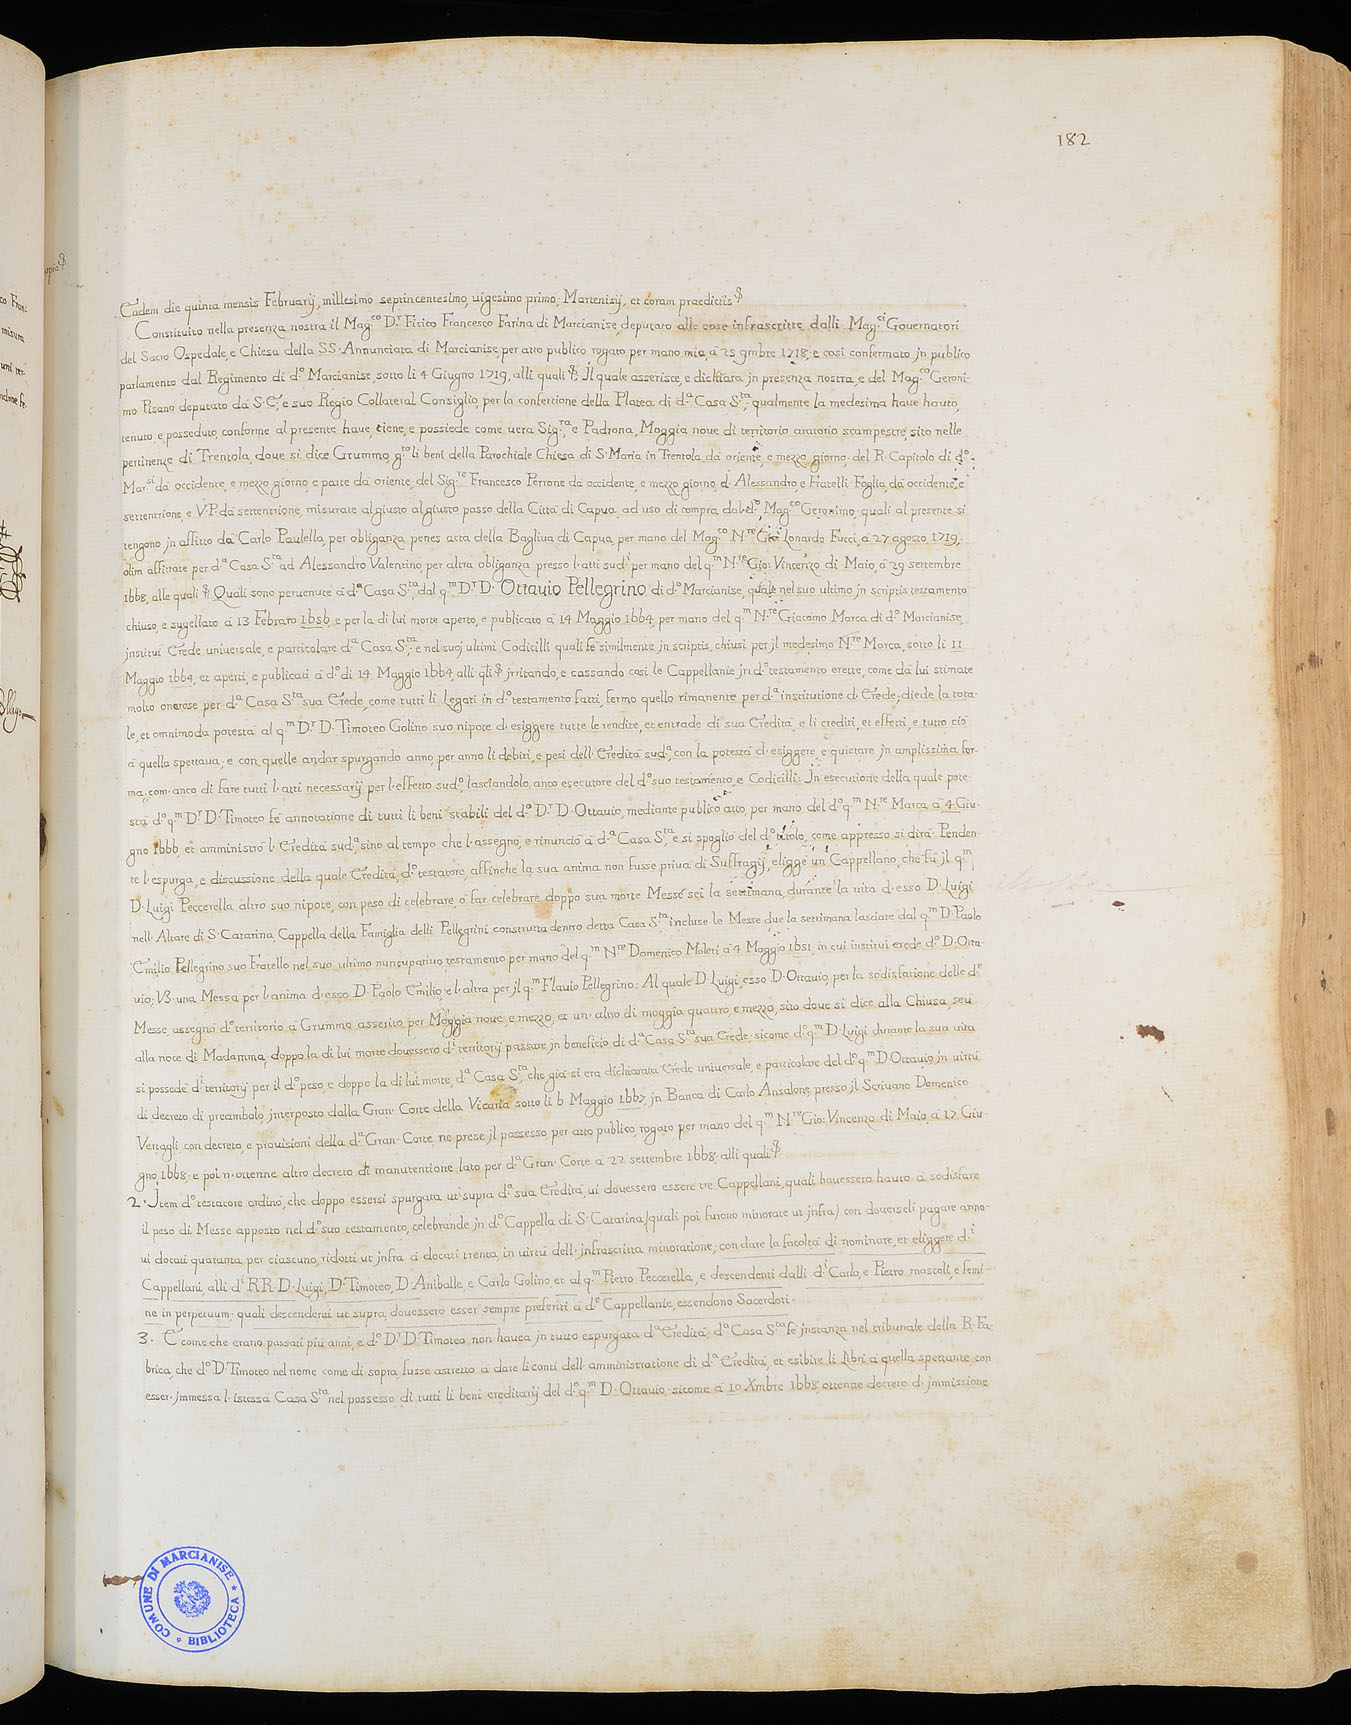 182
Eadem die quinta mensis Februarij, millesimo septincentesimo, uigesimo primo; Martenisij, et coram praedictis
Constituito nella presenza nostra il Mag.co D.r Fisico Francesco Farina di Marcianise, deputato alle cose infrascritte dalli Mag.ci Gouernatori
del Sacro Ospedale, e Chiesa della SS. Annunciata di Marcianise, per atto publico rogato per mano mia, à 25 9mbre 1718, e così confermato jn publico
parlamento dal Regimento di d.o Marcianise, sotto li 4 Giugno 1719, alli quali Jl quale asserisce, e dichiara jn presenza nostra, e del Mag.co Geroni-
mo Pisano deputato da S. E., e suo Regio Collateral Consiglio, per la confettione della Platea di d.a Casa S.ta, qualmente la medesima haue hauto,
tenuto, e posseduto, conforme al presente haue, tiene, e possiede come uera Sig.ra, e Padrona, Moggia noue di territorio aratorio scampestre, sito nelle
pertinenze di Trentola, doue si dice Grummo, g.to li beni della Parochiale Chiesa di S. Maria in Trentola da oriente, e mezzo giorno, del R. Capitolo di d.o
Mar.si da occidente, e mezzo giorno, e parte da oriente, del Sig.re Francesco Perrone da occidente, e mezzo giorno, d. Alessandro, e Fratelli Foglia, da occidente, e
settentrione, e V.P. da settentrione, misurate al giusto al giusto passo della Città di Capua ad uso di compra, dal d.o Mag.co Geronimo, quali al presente si
tengono jn affitto da Carlo Paulella, per obliganza penes acta della Bagliua di Capua, per mano del Mag.co N.re Gio: Lonardo Fucci, à 27 agosto 1719,
olim affittate per d.a Casa S.ta ad Alessandro Valentino, per altra obliganza presso l. atti sud.i per mano del q.m N.re Gio: Vincenzo di Maio, à 29 settembre
1668, alle quali Quali sono peruenute à d.a Casa S.ta, dal q.m D.r D. Ottauio Pellegrino di d.o Marcianise, quale nel suo ultimo jn scriptis testamento
chiuso, e sugellato à 13 Febraro 1656, e per la di lui morte aperto, e publicato à 14 Maggio 1664, per mano del q.m N.re Giacomo Marca di d.o Marcianise,
jnstituì Erede uniuersale, e particolare d.a Casa S.ta, e nel suoj ultimi Codicilli quali fè similmente jn scriptis, chiusi per jl medesimo N.re Marca, sotto li 11
Maggio 1664, et aperti, e publicati à d.o di 14 Maggio 1664, alli q.li jrritando, e cassando così le Cappellanie jn d.o testamento erette, come da lui stimate
molto onerose per d.a Casa S.ta sua Erede, come tutti li Legati in d.o testamento fatti, fermo quello rimanente per d.a institutione d. Erede; diede la tota-
le, et omnimoda potestà al q.m D.r D. Timoteo Golino suo nipote d. esiggere tutte le rendite, et entrade di sua Eredità, e li crediti, et effetti, e tutto ciò
à quella spettaua, e con quelle andar spurgando anno, per anno li debiti, e pesi dell. Eredità sud.a, con la potestà d. esiggere, e quietare jn amplissima for-
ma, com. anco di fare tutti l. atti necessarij per l. effetto sud.o lasciandolo anco esecutore del d.o suo testamento, e Codicilli: Jn esecutione della quale pote-
stà d.o q.m D.r D. Timoteo fè annotatione di tutti li beni stabili del d.o D.r D. Ottauio, mediante publico atto, per mano del d.o q.m N.re Marca, à 4 Giu-
gno 1666, et amministrò l. Eredità sud.a, sino al tempo che l. assegnò, e rinunciò à d.a Casa S.ta, e si spogliò del d.o titolo, come appresso si dirà. Penden-
te l. espurga, e discussione della quale Eredità, d.o testatore, affinche la sua anima non fusse priua di Suffragij, eligge un Cappellano, che fù jl q.m
D. Luigi Peccerella altro suo nipote, con peso di celebrare, ò far celebrare doppo sua morte Messe sei la settimana, durante la uita d. esso D. Luigi
nell. Altare di S. Catarina, Cappella della Famiglia delli Pellegrini construtta dentro detta Casa S.ta incluse le Messe due la settimana lasciate dal q.m D. Paolo
Emilio Pellegrino suo Fratello nel suo ultimo nuncupatiuo testamento per mano del q.m N.re Domenico Moleti à 4 Maggio 1651, in cui instituì erede d.o D. Otta-
uio, V3 una Messa per l. anima d. esso D. Paolo Emilio, e l. altra per jl q.m Flauio Pellegrino: Al quale D. Luigi, esso D. Ottauio, per la sodisfatione delle d.e
Messe, assegnò d.o territorio à Grummo, asserito per Moggia noue, e mezzo, et un. altro di moggia quattro, e mezzo, sito doue si dice alla Chiusa, seu
alla noce di Madamma, doppo la di lui morte douessero d.i territorij passare jn beneficio di d.a Casa S.ta sua Erede, sicome d.o q.m D. Luigi durante la sua uita
si possedè d.i territorij per il d.o peso, e doppo la di lui morte, d.a Casa S.ta, che già si era dichiarata Erede uniuersale, e particolare del d.o q.m D. Ottauio, jn uirtù
di decreto di preambolo, jnterposto dalla Gran. Corte della Vicaria sotto li 6 Maggio 1667, jn Banca di Carlo Ansalone, presso jl Scriuano Domenico
Vertagli con decreto, e prouisioni della d.a Gran. Corte, ne prese jl possesso, per atto publico, rogato per mano del q.m N.re Gio: Vincenzo di Maio, à 17 Giu-
gno, 1668, e poi n. ottenne altro decreto di manutentione, lato per d.a Gran. Corte à 22 settembre 1668, alli quali
2. Jtem d.o testatore ordinò, che doppo essersi spurgata ut supra d.a sua Eredità, ui douessero essere tre Cappellani, quali hauessero hauto à sodisfare
il peso di Messe apposto nel d.o suo testamento, celebrande jn d.o Cappella di S. Catarina (quali poi furono minorate ut jnfra) con douerseli pagare anno-
ui docati quaranta per ciascuno, ridotti ut jnfra à docati trenta, in uirtù dell. jnfrascritta minoratione, con dare la facoltà di nominare, et eliggere d.i
Cappellani, alli d.i RR. D. Luigi, D. Timoteo, D. Aniballe, e Carlo Golino, et al q.m Pietro Peccerella, e descendenti dalli d.i Carlo, e Pietro, mascoli, e femi-
ne in perpetuum, quali descendenti ut supra, douessero esser. sempre preferiti à d.e Cappellanie, essendono Sacerdoti.
3. E come che erano passati più anni, e d.o D.r D. Timoteo, non hauea jn tutto espurgata d.a Eredità, d.a Casa S.ta fè jnstanza nel tribunale della R. Fa-
brica, che d.o D. Timoteo nel nome come di sopra, fusse astretto à dare li conti dell. amministratione di d.a Eredità, et esibire li Libri à quella spettante, con
esser. jmmessa l. istessa Casa S.ta nel possesso, di tutti li beni ereditarij del d.o q.m D. Ottauio, sicome à 10 Xmbre 1668, ottenne decreto d. jmmissione
COMUNE DI MARCIANISE * BIBLIOTECA *